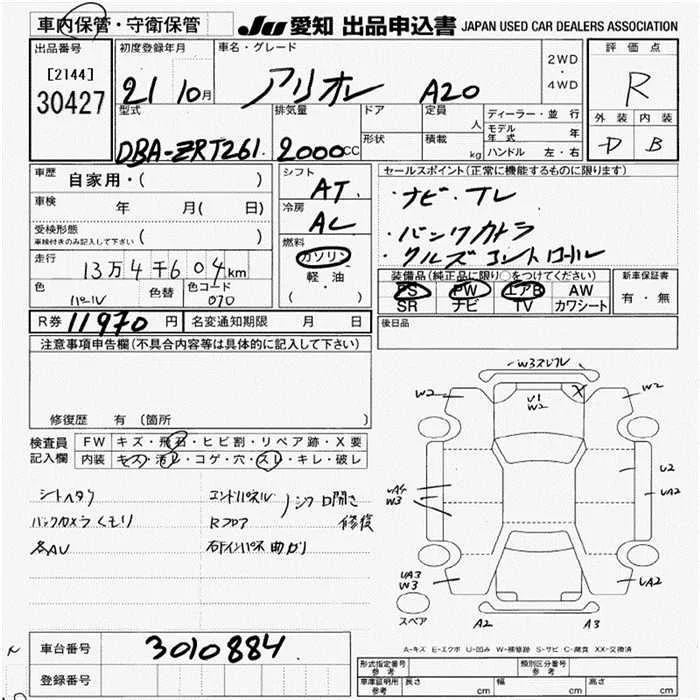 車内保管・守衛保管
JU 愛知 出品申込書 JAPAN USED CAR DEALERS ASSOCIATION
出品番号
[2144]
30427
初度登録年月
21 10月
車名・グレード
アリオン A20
2WD
・
4WD
評価点
R
外装 内装
D B
型式
DBA-ZRT261
排気量
2000cc
ドア
形状
定員
人
積載
kg
ディーラー・並行
モデル年式 年
ハンドル 左・右
車歴
自家用・( )
車検
年 月( 日)
受検形態
車検付きのみ記入して下さい ( )
走行
13万4千604km
色
パール
色替
色コード
070
シフト
AT
冷房
AC
燃料
ガソリン
・
軽油
( ・ )
セールスポイント(正常に機能するものに限ります)
・ナビ・TV
・バックカメラ
・クルーズコントロール
装備品(純正品に限り○をつけてください)
PS PW エアB AW
SR ナビ TV カワシート
新車保証書
有・無
R券 11970円 名変通知期限 月 日
後日品
注意事項申告欄(不具合内容等は具体的に記入して下さい)
修復歴 有 (箇所 )
検査員記入欄
FW キズ・飛石・ヒビ割・リペア跡・X要
内装 キズ・汚レ・コゲ・穴・スレ・キレ・破レ
シートヘタリ
バックカメラくもり
各AU
エンドパネル
Rフロア
右インパネ曲がり
修復
W2
W2
U1
W2
X
UA4
W3
U2
UA2
UA3
W3
UA2
スペア
A2
A3
A-キズ E-エクボ U-凹み W-補修跡 S-サビ C-腐食 XX-交換済
車台番号
3010884
登録番号
形式指定番号
参考
類別区分番号
参考
車庫証明用
参考
長さ cm 幅 cm 高さ cm